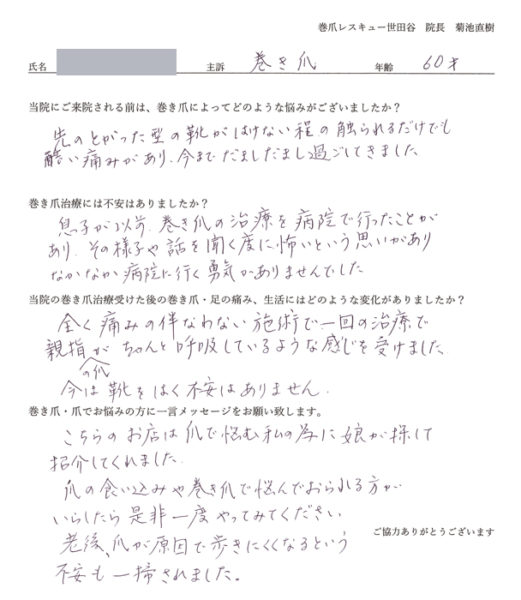 巻爪レスキュー世田谷　院長　菊池直樹
氏名　主訴　巻き爪　年齢　60才
当院にご来院される前は、巻き爪によってどのような悩みがございましたか？
先のとがった型の靴がはけない程の触られるだけでも
酷い痛みがあり、今までだましだまし過ごしてきました
巻き爪治療には不安はありましたか？
息子が以前、巻き爪の治療を病院で行ったことが
あり、その様子や話を聞く度に怖いという思いがあり
なかなか病院に行く勇気がありませんでした
当院の巻き爪治療受けた後の巻き爪・足の痛み、生活にはどのような変化がありましたか？
全く痛みの伴なわない施術で一回の治療で
親指の爪がちゃんと呼吸しているような感じを受けました、
今は靴をはく不安はありません.
巻き爪・爪でお悩みの方に一言メッセージをお願い致します。
こちらのお店は爪で悩む私の為に娘が探して
招介してくれました.
爪の食い込みや巻き爪で悩んでおられる方が
いらしたら是非一度やってみてください
ご協力ありがとうございます
老後、爪が原因で歩きにくくなるという
不安も一掃されました。